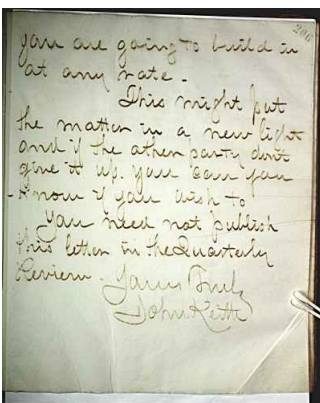 206
you are going to build in
at any rate.
This might put
the matter in a new light
and if the other party don't
give it up. you can you
know if you wish to
You need not publish
this letter in the Quarterly
Review. Yours Truly
John Keith